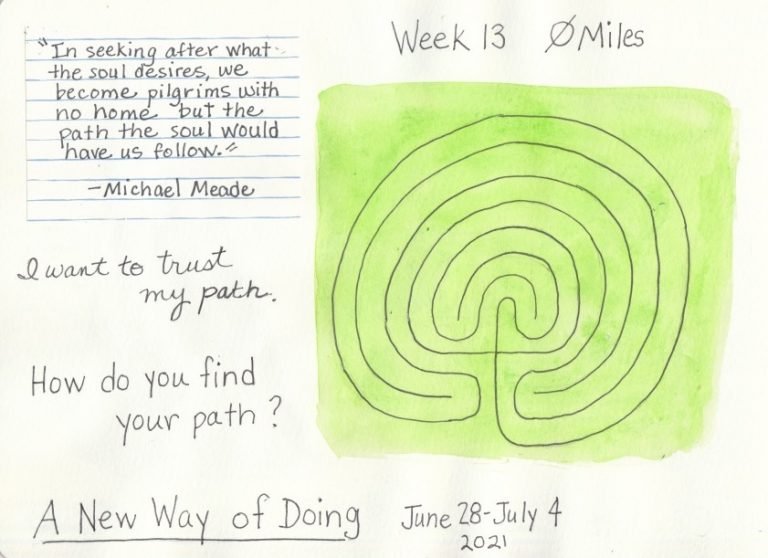 "In seeking after what
the soul desires, we
become pilgrims with
no home but the
path the soul would
have us follow."
-Michael Meade
Week 13 ØMiles
I want to trust
my path.
How do you find
your path?
A New Way of Doing
June 28-July 4
2021